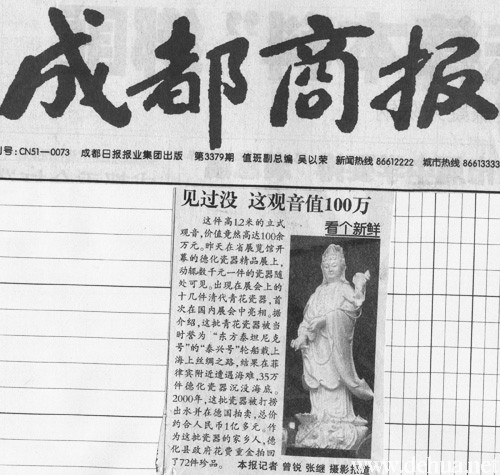 成都商报
号:CN51—0073 成都日报报业集团出版 第3379期 值班副总编 吴以荣 新闻热线 86612222 城市热线 86613333
见过没 这观音值100万
看个新鲜
这件高1.2米的立式
观音,价值竟然高达100余
万元。昨天在省展览馆开
幕的德化瓷器精品展上,
动辄数千元一件的瓷器随
处可见。出现在展会上的
十几件清代青花瓷器,首
次在国内展会中亮相。据
介绍,这批青花瓷器被当
时誉为“东方泰坦尼克
号”的“泰兴号”轮船载上
海上丝绸之路,结果在菲
律宾附近遭遇海难,35万
件德化瓷器沉没海底。
2000年,这批瓷器被打捞
出水并在德国拍卖,总价
约合人民币1亿多元。作
为这批瓷器的家乡人,德
化县政府花费重金拍回
了72件珍品。 本报记者 曾锐 张继 摄影报道